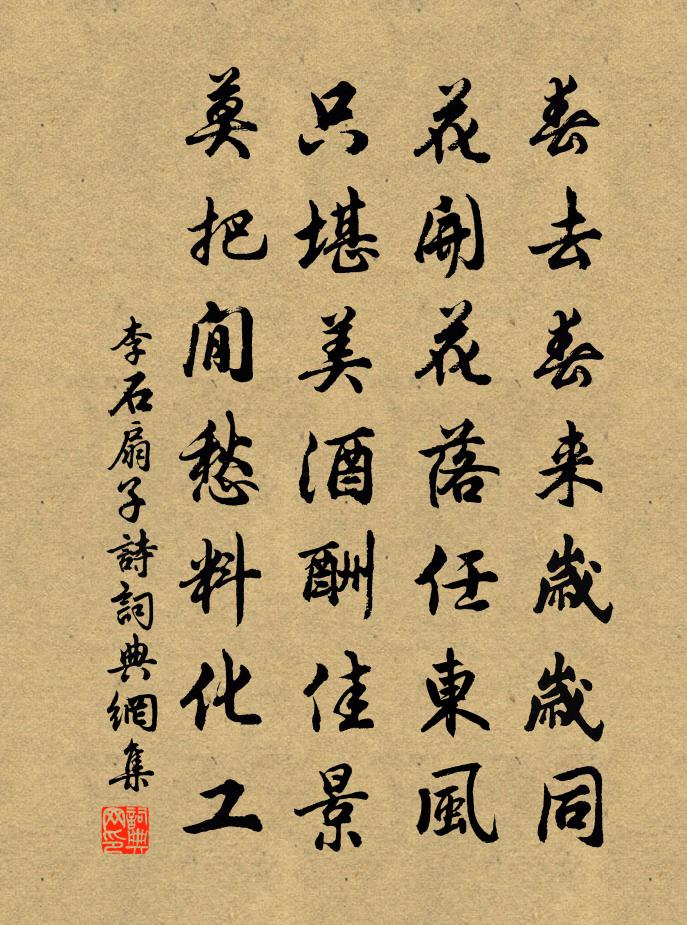 春去春来歳歳同
花開花落任東風
只堪美酒酬佳景
莫把閒愁料化工
李石扇子詩詞典網集
詞典网印